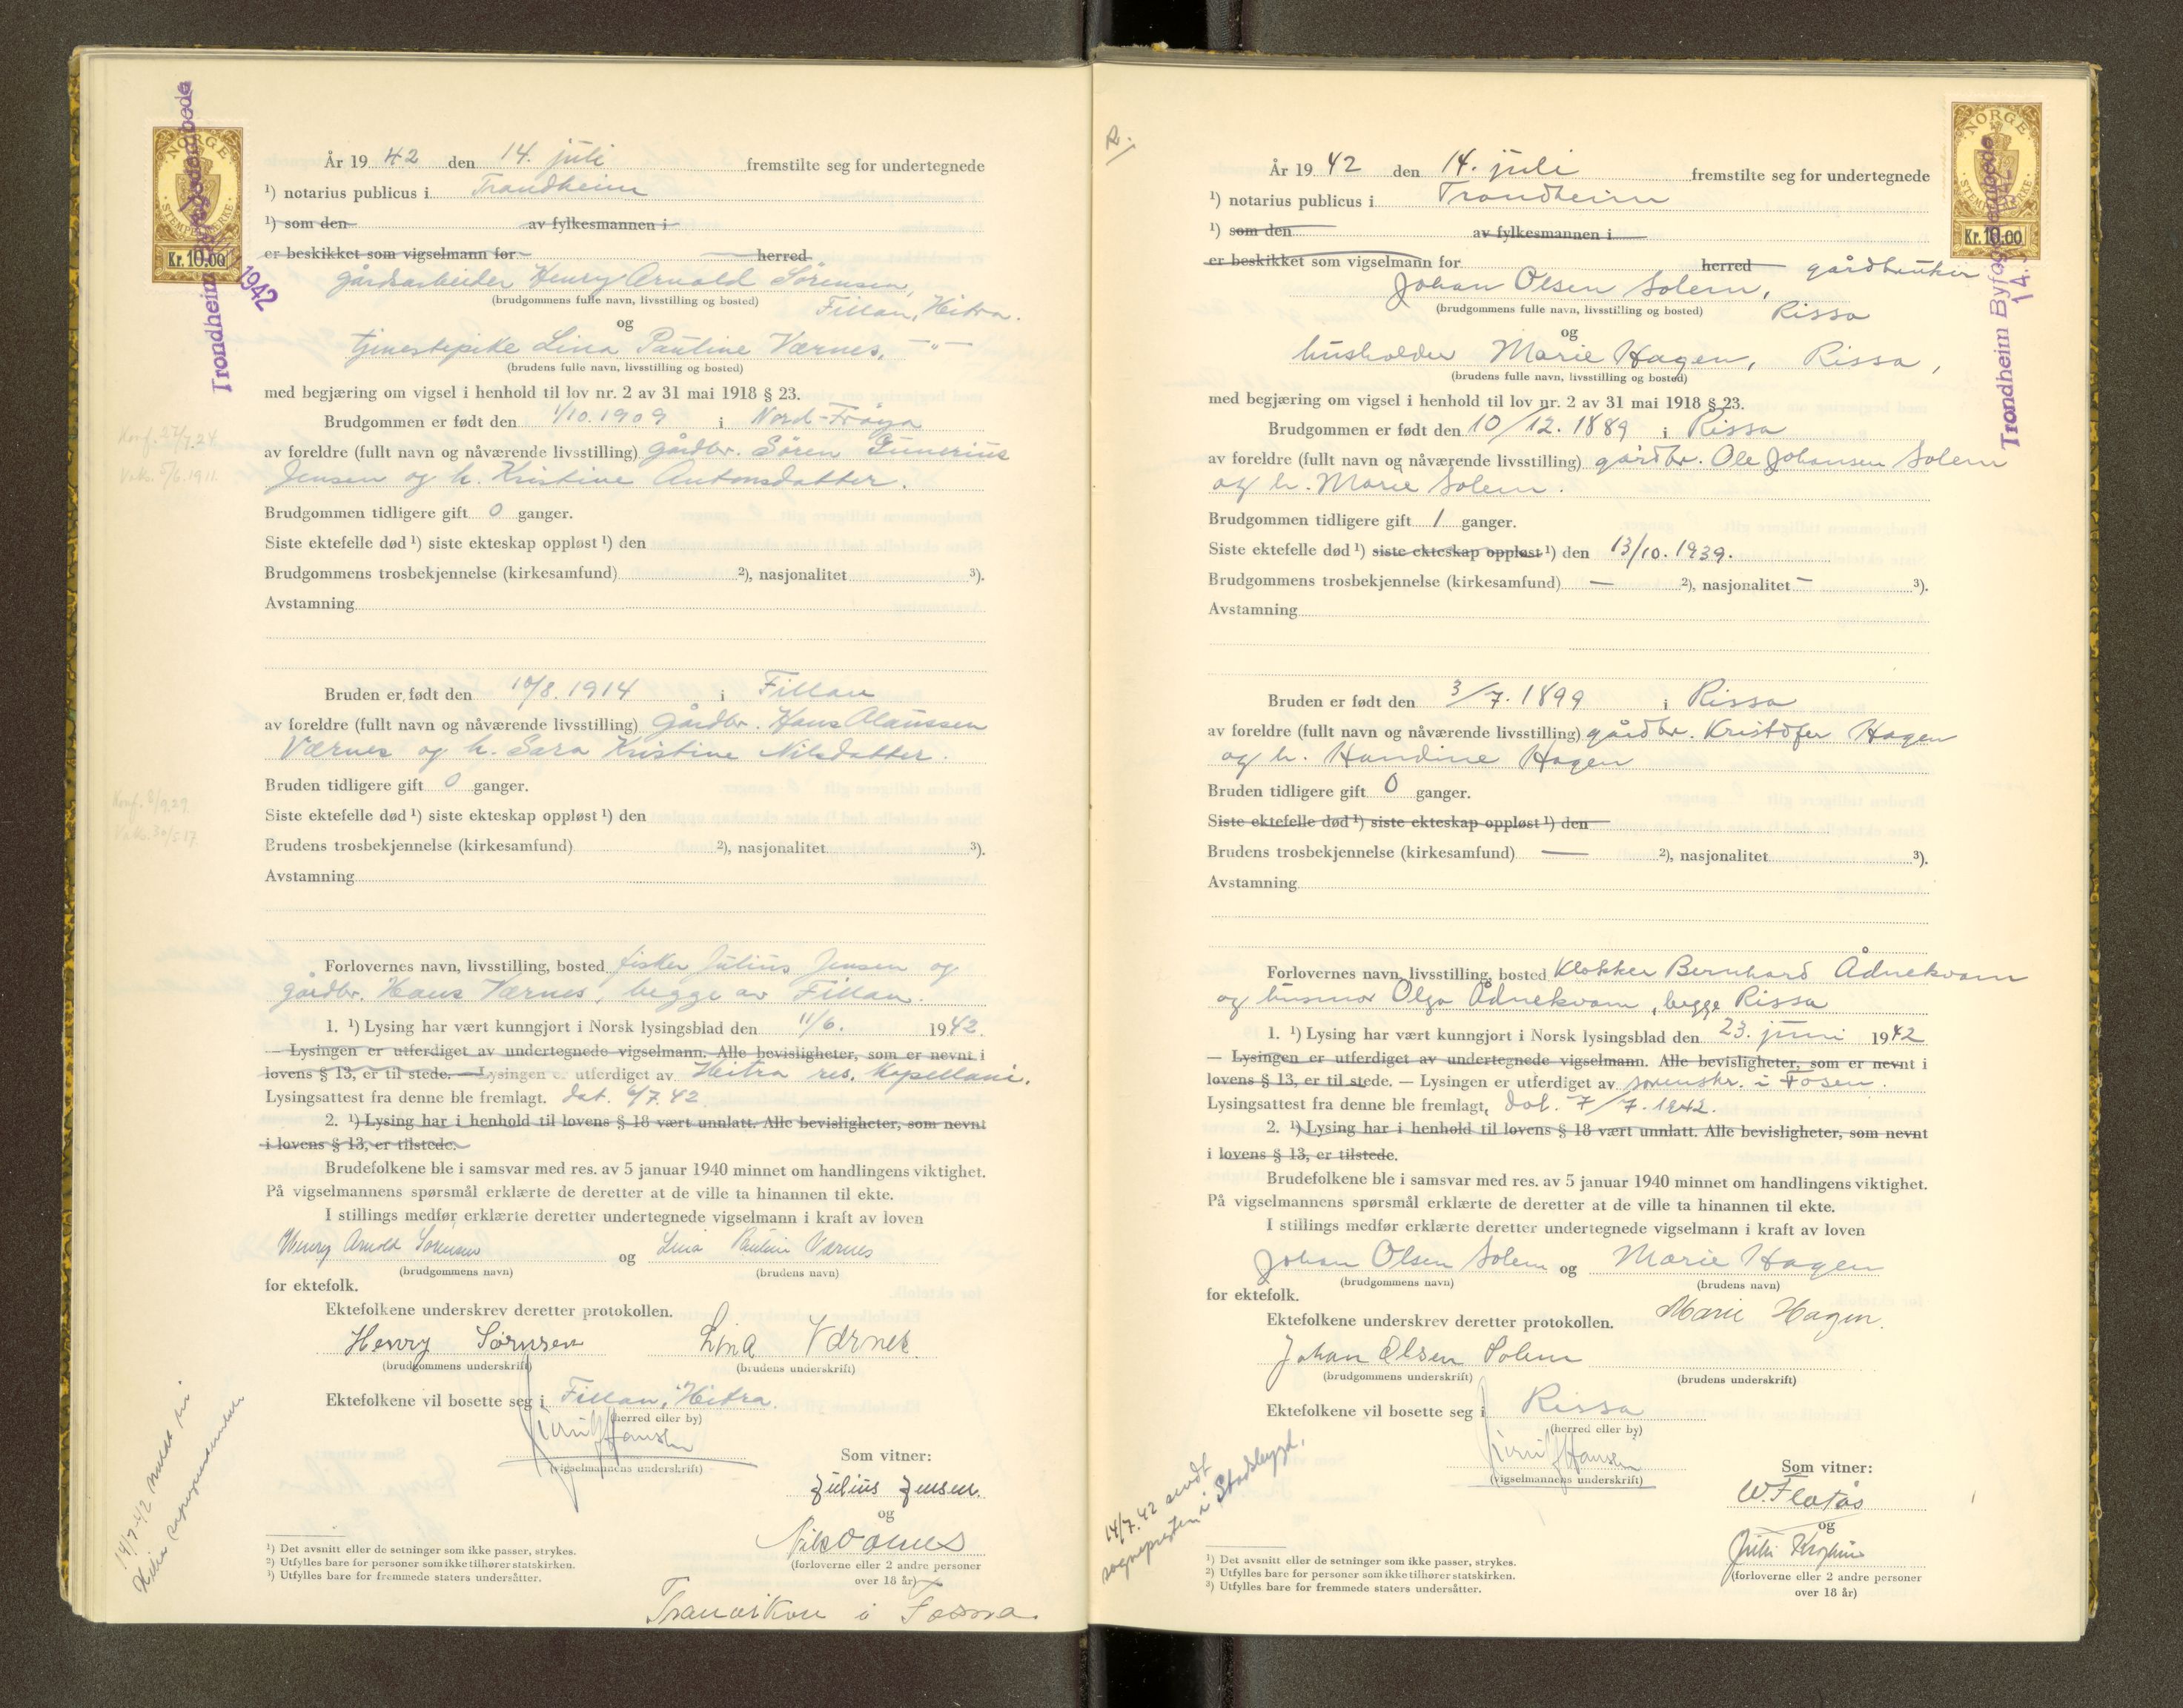 NORGE
STEMPELMERKE
Kr. 10.00
Trondheim Byfogdembede
1942
År 19 42 den 14. juli fremstilte seg for undertegnede
¹) notarius publicus i Trondheim
¹) som den av fylkesmannen i
er beskikket som vigselmann for herred
gårdsarbeider Henry Arnold Sörensen,
(brudgommens fulle navn, livsstilling og bosted) Fillan, Hitra.
og
tjenestepike Lina Pauline Værnes, —"—
(brudens fulle navn, livsstilling og bosted)
med begjæring om vigsel i henhold til lov nr. 2 av 31 mai 1918 § 23.
Brudgommen er født den 1/10. 1909 i Nord-Fröya
Konf. 27/7.24
av foreldre (fullt navn og nåværende livsstilling) gårdbr. Sören Gunerius
Vaks. 5/6.1911.
Jensen og h. Kristine Antonsdatter.
Brudgommen tidligere gift 0 ganger.
Siste ektefelle død ¹) siste ekteskap oppløst ¹) den
Brudgommens trosbekjennelse (kirkesamfund) ²), nasjonalitet ³).
Avstamning
Bruden er født den 10/8. 1914 i Fillan
av foreldre (fullt navn og nåværende livsstilling) gårdbr. Hans Olaussen
Værnes og h. Sara Kristine Nilsdatter.
Bruden tidligere gift 0 ganger.
Konf. 8/9.29.
Siste ektefelle død ¹) siste ekteskap oppløst ¹) den
Vaks. 30/5.17
Brudens trosbekjennelse (kirkesamfund) ²), nasjonalitet ³).
Avstamning
Forlovernes navn, livsstilling, bosted fisker Julius Jensen og
gårdbr. Hans Værnes, begge av Fillan.
1. ¹) Lysing har vært kunngjort i Norsk lysingsblad den 11/6. 1942.
— Lysingen er utferdiget av undertegnede vigselmann. Alle bevisligheter, som er nevnt i
lovens § 13, er til stede. — Lysingen er utferdiget av Hitra res. kapellani.
Lysingsattest fra denne ble fremlagt. dat. 6/7.42
2. ¹) Lysing har i henhold til lovens § 18 vært unnlatt. Alle bevisligheter, som nevnt
i lovens § 13, er tilstede.
Brudefolkene ble i samsvar med res. av 5 januar 1940 minnet om handlingens viktighet.
På vigselmannens spørsmål erklærte de deretter at de ville ta hinannen til ekte.
I stillings medfør erklærte deretter undertegnede vigselmann i kraft av loven
Henry Arnold Sörensen og Lina Pauline Værnes
(brudgommens navn) (brudens navn)
for ektefolk.
Ektefolkene underskrev deretter protokollen.
Henry Sørnsen Lina Værnes.
(brudgommens underskrift) (brudens underskrift)
Ektefolkene vil bosette seg i Fillan, Hitra.
(herred eller by)
Hansen
(vigselmannens underskrift)
Som vitner:
Julius Jensen.
og
(forloverne eller 2 andre personer
over 18 år)
¹) Det avsnitt eller de setninger som ikke passer, strykes.
²) Utfylles bare for personer som ikke tilhører statskirken.
³) Utfylles bare for fremmede staters undersåtter.
14/7-42
R.
NORGE
STEMPELMERKE
Kr. 10.00
Trondheim Byfogdembede
14.
År 19 42 den 14. juli fremstilte seg for undertegnede
¹) notarius publicus i Trondheim
¹) som den av fylkesmannen i
er beskikket som vigselmann for herred gårdbruker
Johan Olsen Solem,
(brudgommens fulle navn, livsstilling og bosted) Rissa
og
husholder Marie Hagen, Rissa,
(brudens fulle navn, livsstilling og bosted)
med begjæring om vigsel i henhold til lov nr. 2 av 31 mai 1918 § 23.
Brudgommen er født den 10/12. 1889 i Rissa
av foreldre (fullt navn og nåværende livsstilling) gårdbr. Ole Johansen Solem
og h. Marie Solem.
Brudgommen tidligere gift 1 ganger.
Siste ektefelle død ¹) siste ekteskap oppløst ¹) den 13/10. 1939.
Brudgommens trosbekjennelse (kirkesamfund) — ²), nasjonalitet — ³).
Avstamning
Bruden er født den 3/7. 1899 i Rissa
av foreldre (fullt navn og nåværende livsstilling) gårdbr. Kristofer Hagen
og h. Handine Hagen
Bruden tidligere gift 0 ganger.
Siste ektefelle død ¹) siste ekteskap oppløst ¹) den
Brudens trosbekjennelse (kirkesamfund) — ²), nasjonalitet ³).
Avstamning
Forlovernes navn, livsstilling, bosted Klokker Bernhard Ådnekvam
og husmor Olga Ådnekvam, begge Rissa
1. ¹) Lysing har vært kunngjort i Norsk lysingsblad den 23. juni 1942
— Lysingen er utferdiget av undertegnede vigselmann. Alle bevisligheter, som er nevnt i
lovens § 13, er til stede. — Lysingen er utferdiget av sorenskr. i Fosen.
Lysingsattest fra denne ble fremlagt, dat. 7/7. 1942.
2. ¹) Lysing har i henhold til lovens § 18 vært unnlatt. Alle bevisligheter, som nevnt
i lovens § 13, er tilstede.
Brudefolkene ble i samsvar med res. av 5 januar 1940 minnet om handlingens viktighet.
På vigselmannens spørsmål erklærte de deretter at de ville ta hinannen til ekte.
I stillings medfør erklærte deretter undertegnede vigselmann i kraft av loven
Johan Olsen Solem og Marie Hagen
(brudgommens navn) (brudens navn)
for ektefolk.
Ektefolkene underskrev deretter protokollen. Marie Hagen.
Johan Olsen Solem
(brudgommens underskrift) (brudens underskrift)
Ektefolkene vil bosette seg i Rissa
(herred eller by)
Hansen
(vigselmannens underskrift)
Som vitner:
W. Flatås
og
(forloverne eller 2 andre personer
over 18 år)
14/7.42 sendt
sognepresten i Stadsbygd.
¹) Det avsnitt eller de setninger som ikke passer, strykes.
²) Utfylles bare for personer som ikke tilhører statskirken.
³) Utfylles bare for fremmede staters undersåtter.